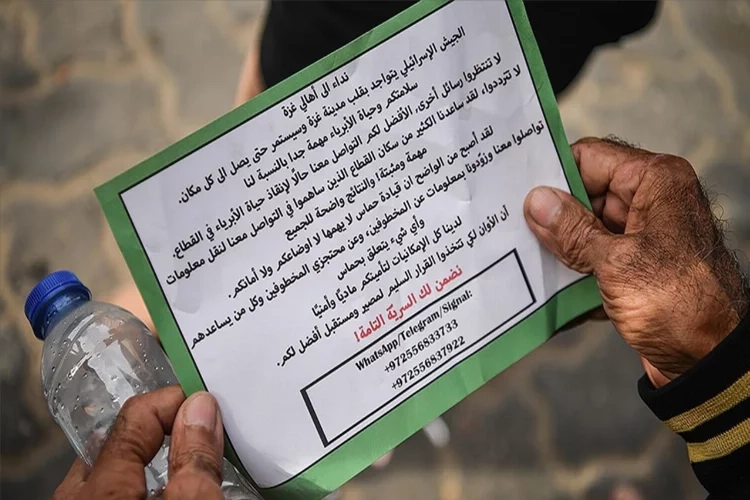 نداء الى أهالي غزة
الجيش الإسرائيلي يتواجد بقلب مدينة غزة وسيستمر حتى يصل الى كل مكان.
سلامتكم وحياة الأبرياء مهمة جدا بالنسبة لنا
لا تنتظروا رسائل أخرى، الأفضل لكم التواصل معنا حالًا لإنقاذ حياة الأبرياء في القطاع.
لا تترددوا، لقد ساعدنا الكثير من سكان القطاع الذين ساهموا في التواصل معنا لنقل معلومات
مهمة ومثبتة! والنتائج واضحة للجميع
لقد أصبح من الواضح أن قيادة حماس لا يهمها لا اوضاعكم ولا أمانكم.
تواصلوا معنا وزوّدونا بمعلومات عن المخطوفين، وعن محتجزي المخطوفين وكل من يساعدهم
وأي شيء يتعلق بحماس
لدينا كل الإمكانيات لتأمينكم ماديًا وأمنيًا
أن الأوان لكي تتخذوا القرار السليم لمصير ومستقبل أفضل لكم.
نضمن لك السريّة التامة!
WhatsApp/Telegram/Signal:
+972556833733
+972556837922